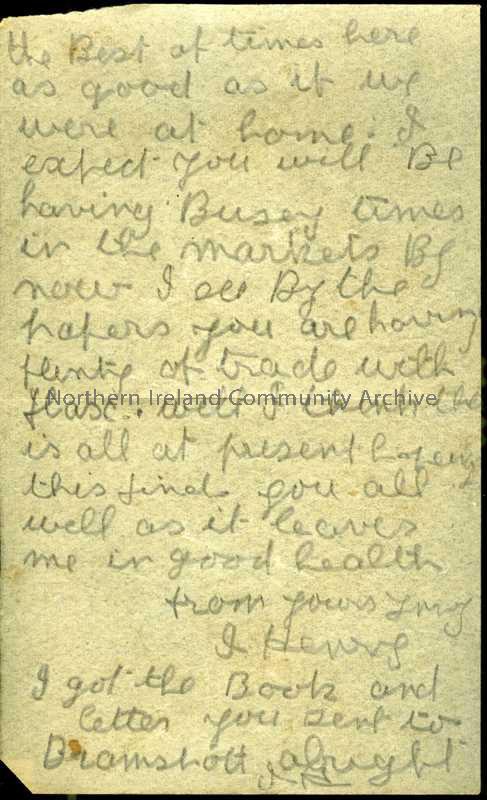 the Best of times here
as good as if we
were at home. I
expect you will Be
having Busey times
in the markets By
now I see By the
papers you are having
plenty of trade with
flax. well I think this
Northern Ireland Community Archive
is all at present hopeing
this finds you all
well as it leaves
me in good health
from yours
J Henry
I got the Book and
letter you sent to
Bramshott alright